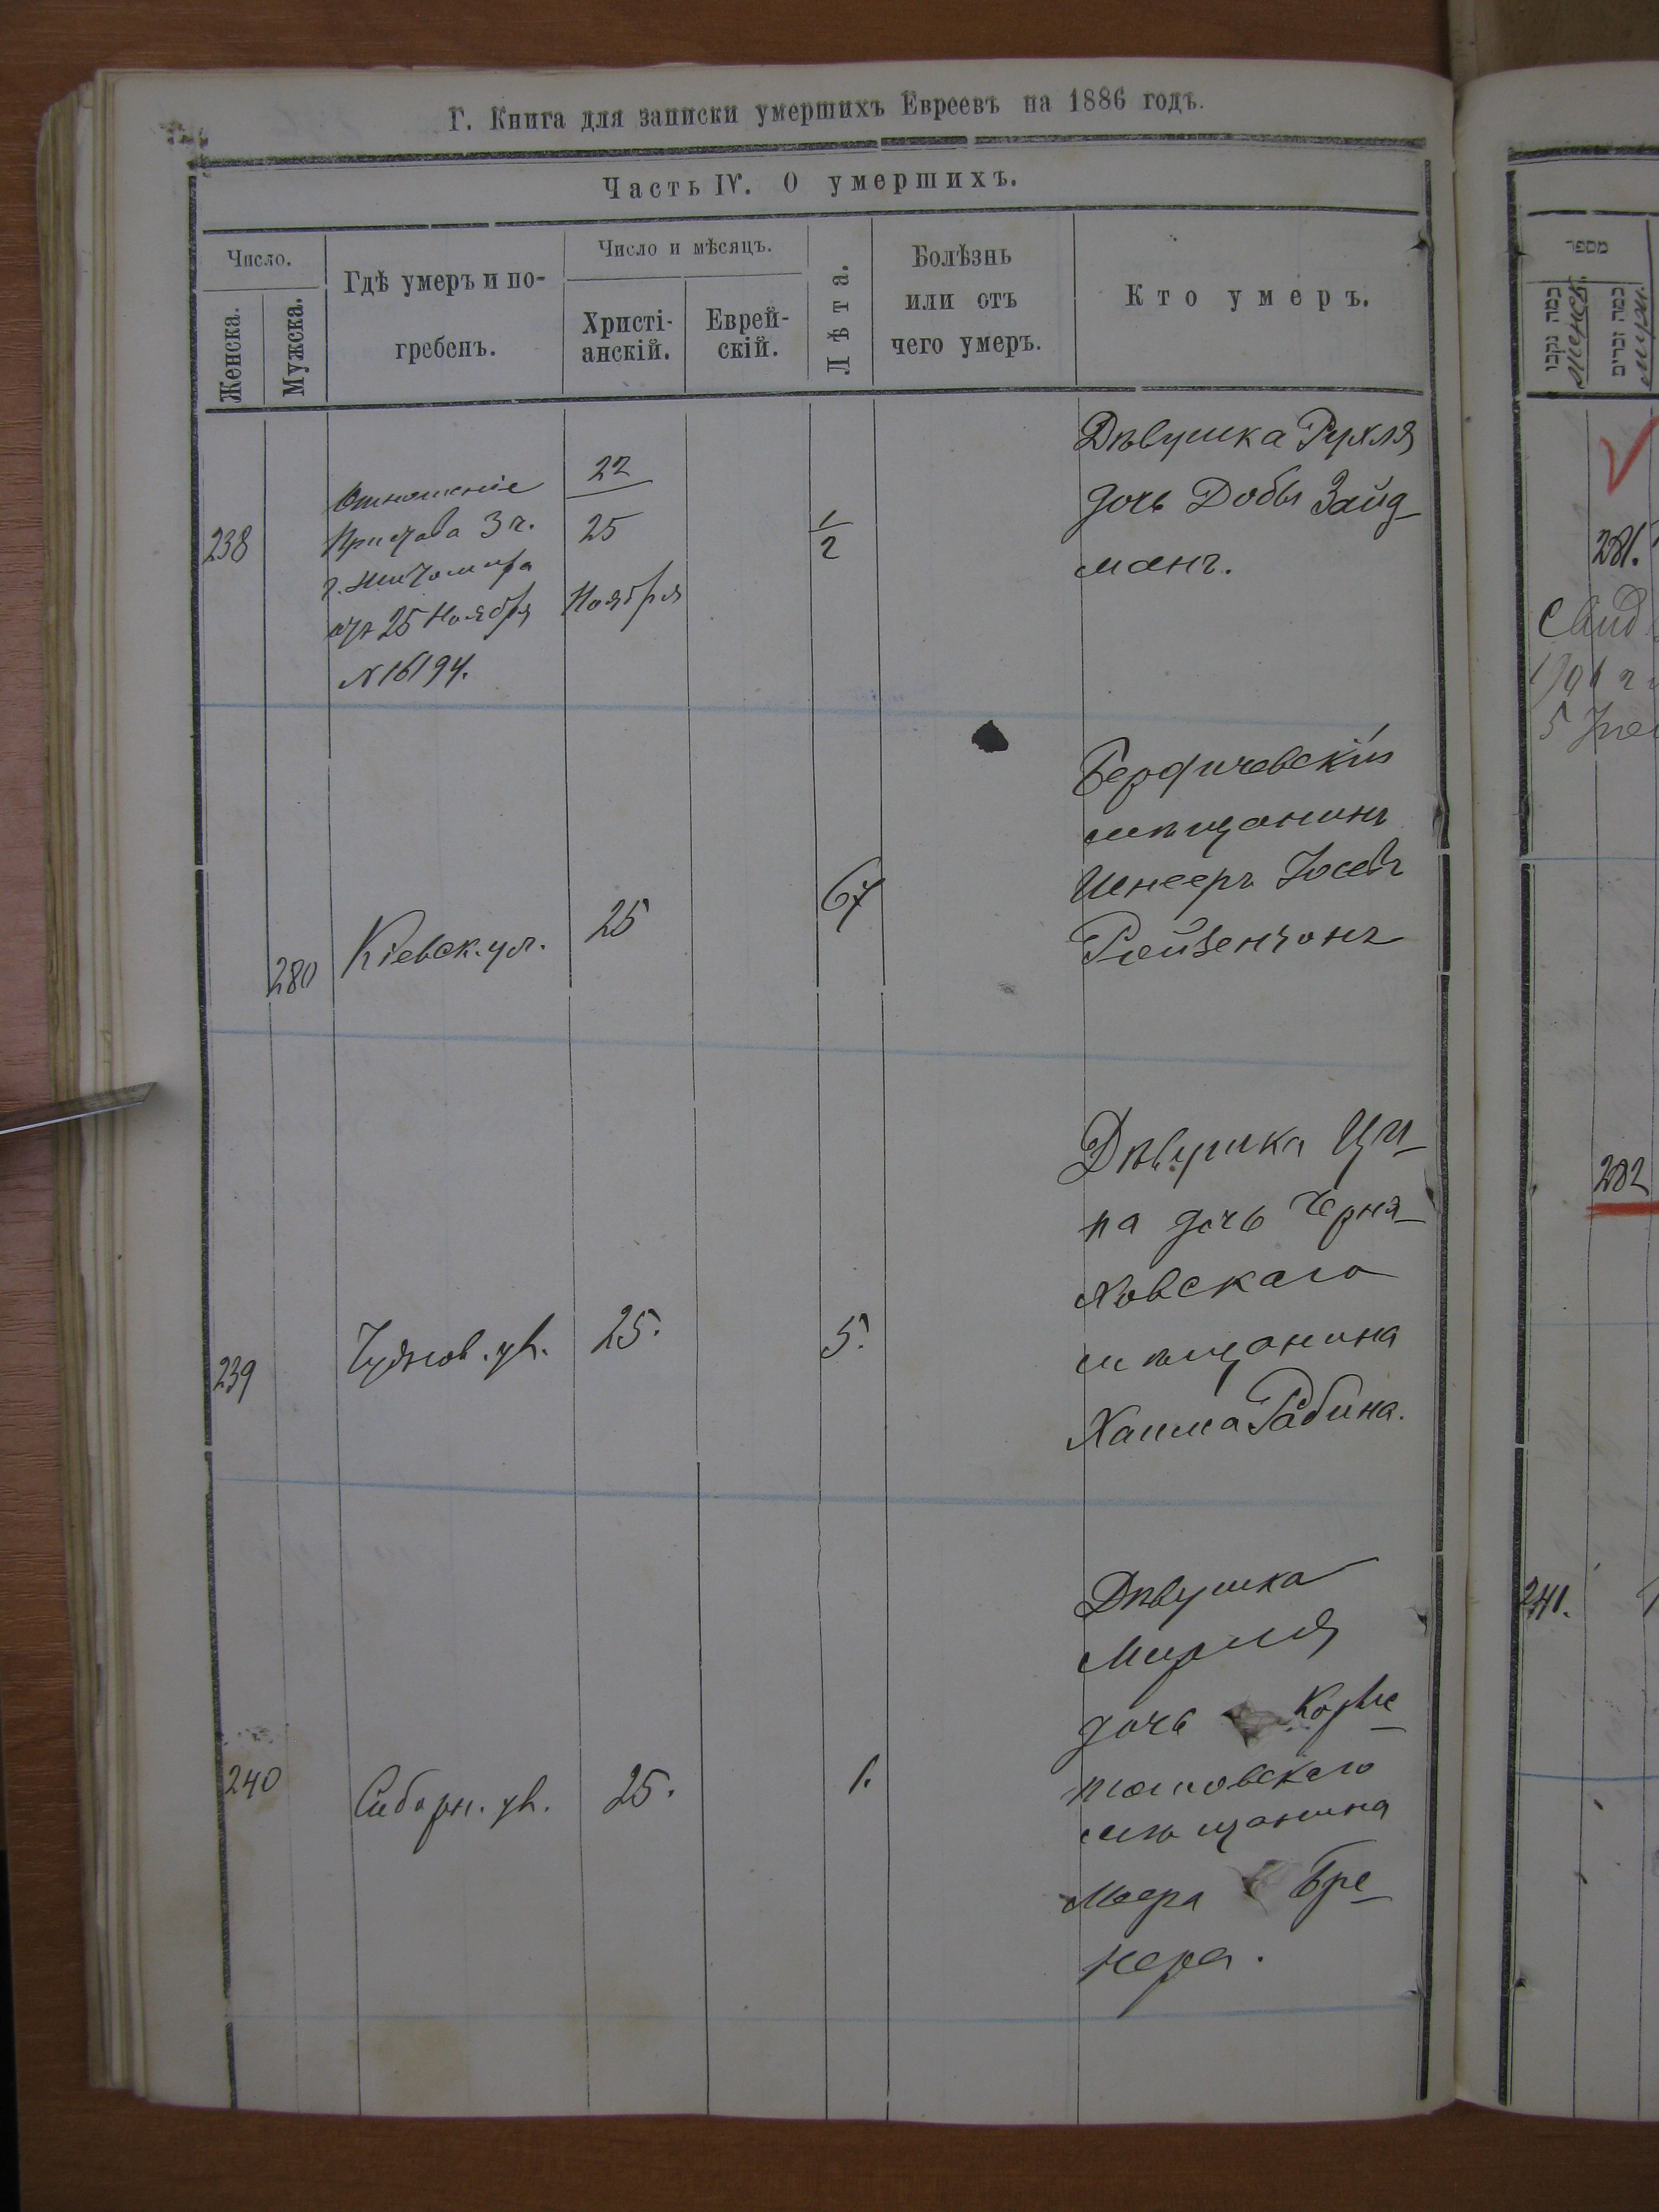 Г. Книга для записки умершихъ Евреевъ на 1886 годъ.
Часть IV. О умершихъ.
Число.
Женска.
Мужска.
Гдѣ умеръ и по-
гребенъ.
Число и мѣсяцъ.
Христі-
анскій.
Еврей-
скій.
Лѣта.
Болѣзнь
или отъ
чего умеръ.
Кто умеръ.
238
Отношеніе
Пристава 3 ч.
г. Житомира
отъ 25 Ноября
№ 16194.
22
25
Ноября
1/2
Дѣвушка Рухля
дочь Добы Зайд-
манъ.
280
Кіевск. ул.
25
67
Бердичевскій
мѣщанинъ
Шнееръ Іосевъ
239
Чуднов. ул.
25.
5.
Дѣвушка Ци-
па дочь Черня-
ховскаго
мѣщанина
Хаима Рабина.
240
25.
1.
Дѣвушка
дочь
мѣщанина
Меера Бре-
нера.
מספר
כמה נקבו
женск.
כמה זכרים
мужи.
281.
Свид
5
282
241.